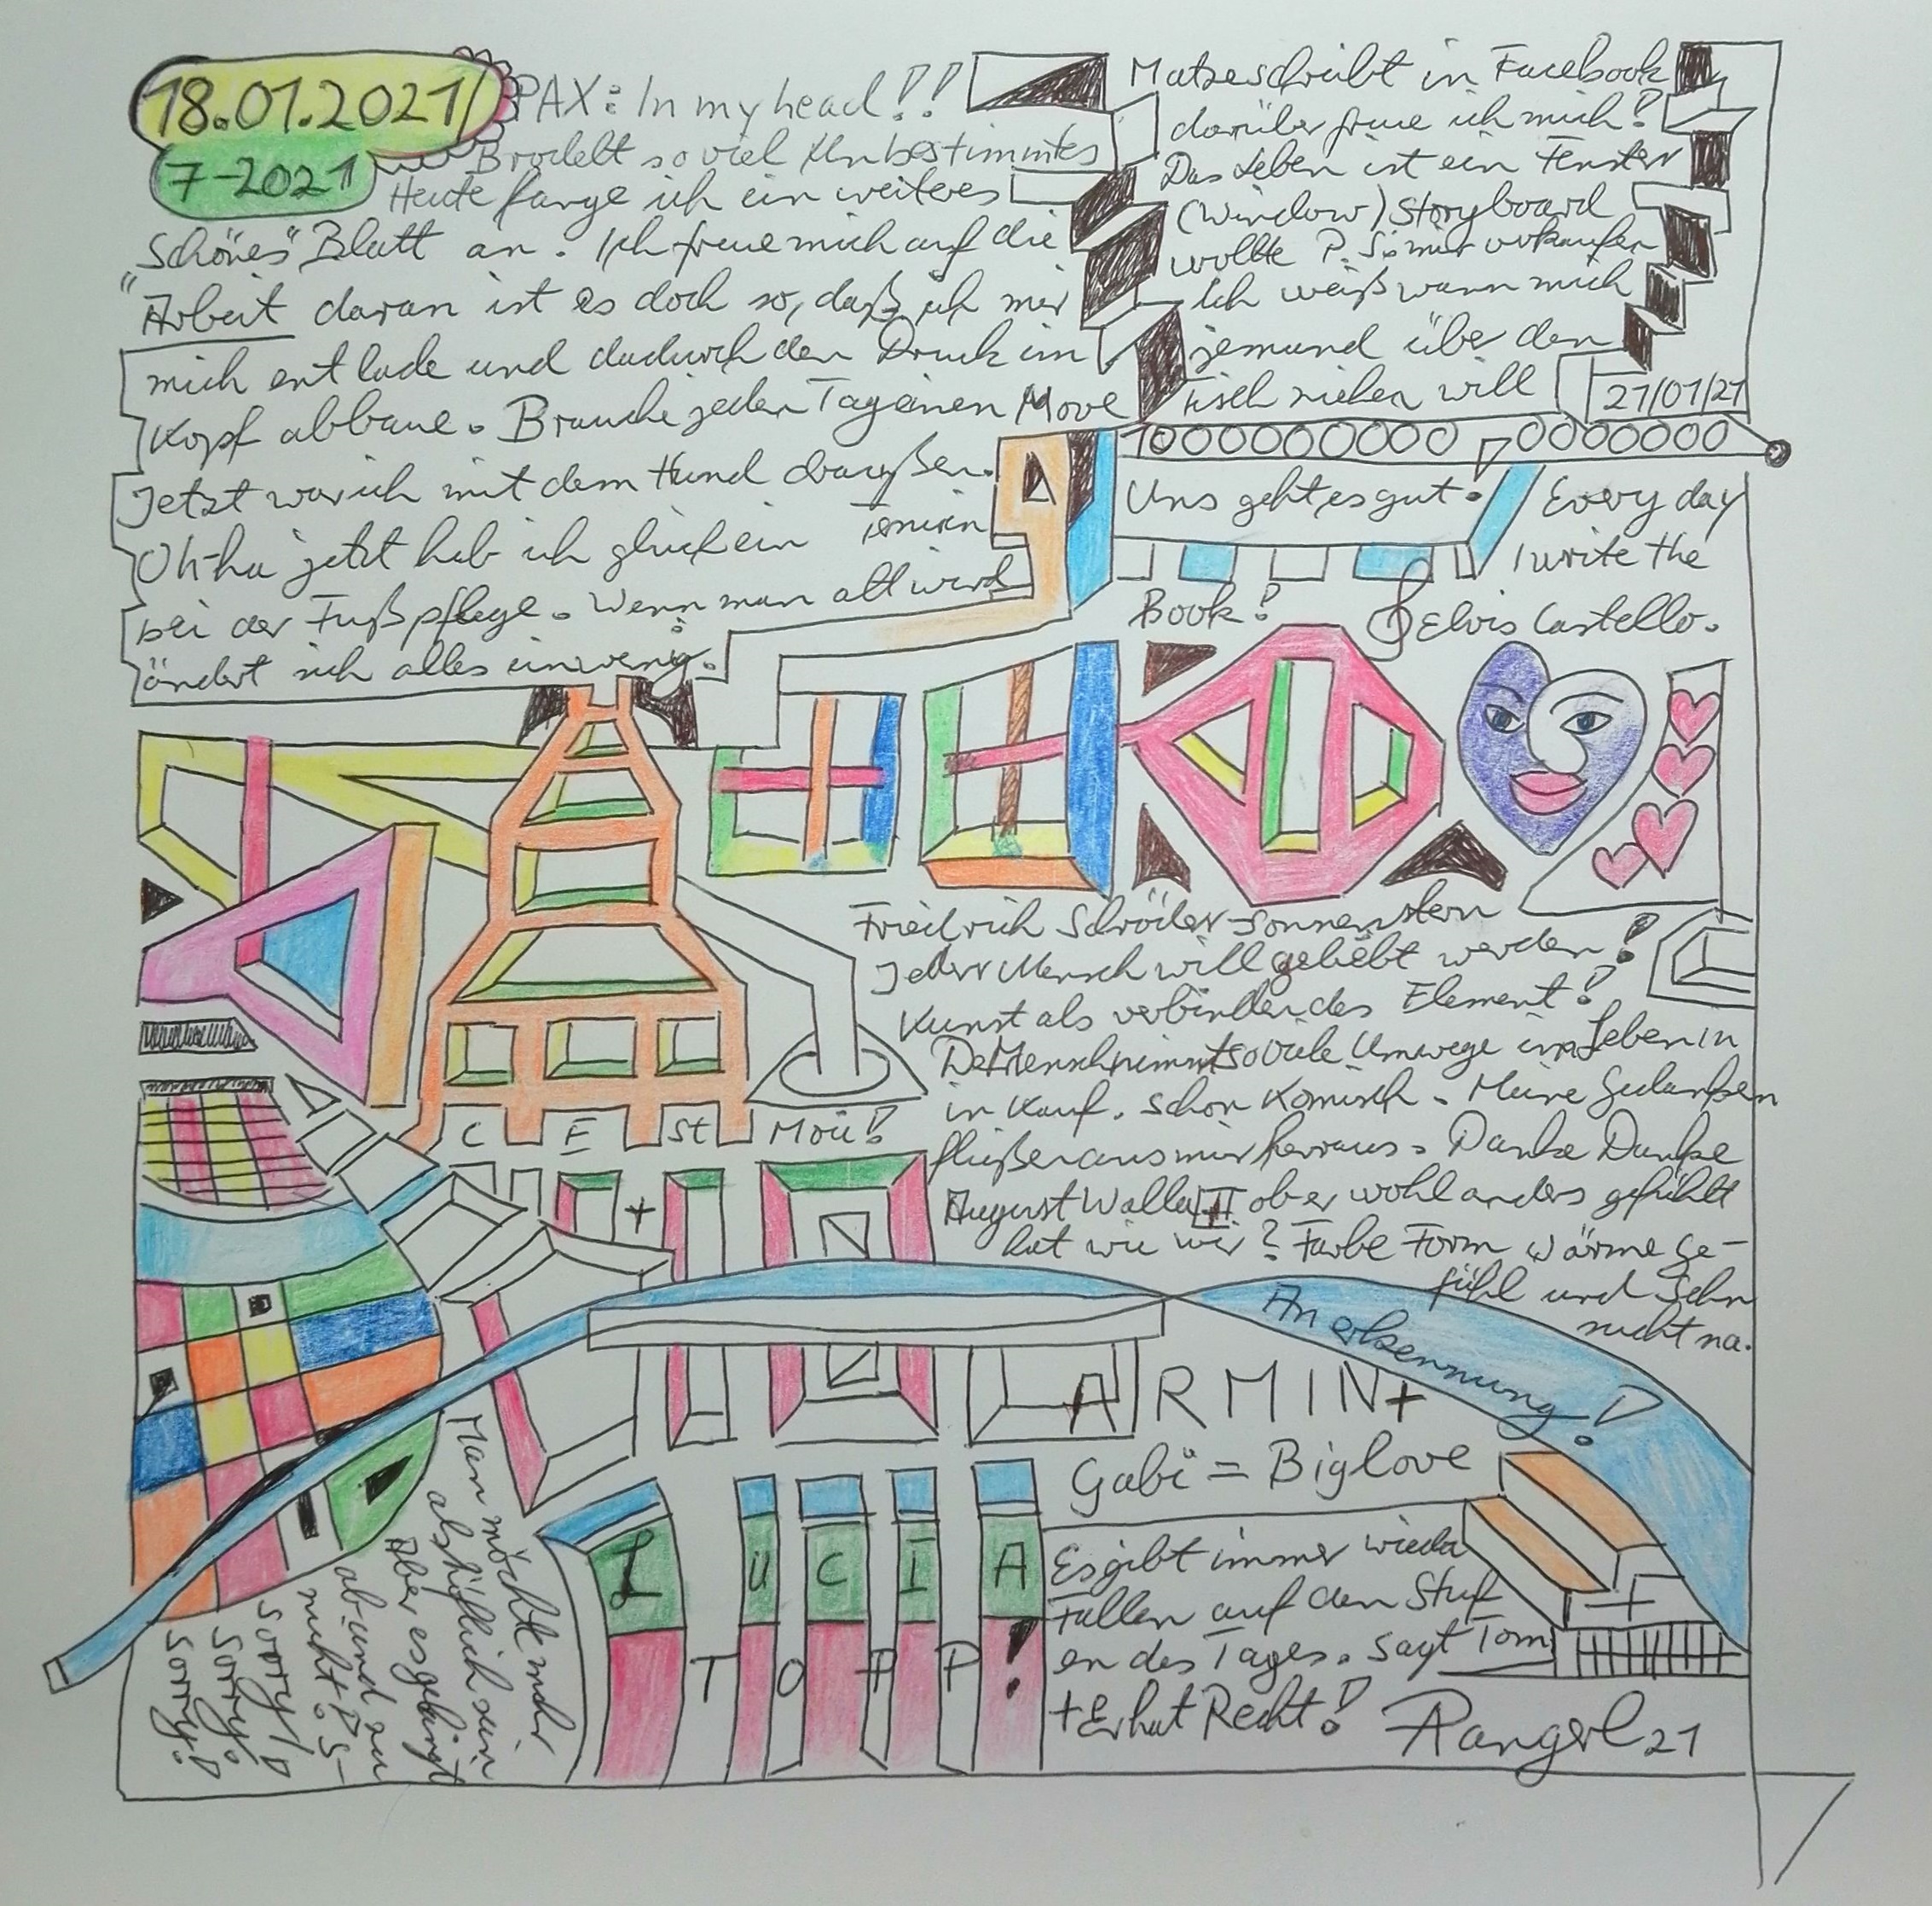 18.01.2021
7-2021
PAX: In my head!!
Brodelt so viel Unbestimmtes
Heute fange ich ein weiteres
"Schönes" Blatt an. Ich freue mich auf die
"Arbeit daran ist es doch so, daß ich mir
mich entlade und dadurch den Druck im
Kopf abbaue. Brauche jeden Tag einen Move
Jetzt war ich mit dem Hund draußen.
Oh-ha jetzt hab ich gleich ein Termin
bei der Fußpflege. Wenn man alt wird
ändert sich alles ein wenig.
Matze schreibt in Facebook
darüber freue ich mich!
Das Leben ist ein Fenster
(Window) Storyboard
wollte P. S. mir verkaufen
Ich weiß wann mich
jemand über den
Tisch ziehen will
21/01/21
Uns geht es gut.
Every day
I write the
Book! Elvis Castello.
Friedrich Schröder-Sonnenstern
Jeder Mensch will geliebt werden!
Kunst als verbindendes Element!
Der Mensch nimmt so viele Umwege im Leben in
in Kauf. Schon Komisch. Meine Gedanken
fließen aus mir herraus. Danke Danke
August Walla ob er wohl anders gefühlt
hat wie wir? Farbe Form wärme Ge-
fühl und Sehn
sucht na.
C E St Moi!
Anerkennung!
ARMIN+
Gabi = Biglove
Man möchte mehr
als höflich sein
Aber es gelingt
ab und zu
nicht
Sorry!
Sorry!
Sorry!
LUCIA
TOPP!
Es gibt immer wieda
Fallen auf den Stuf
en des Tages. Sagt Tom
+ Er hat Recht!
Rangerl 21